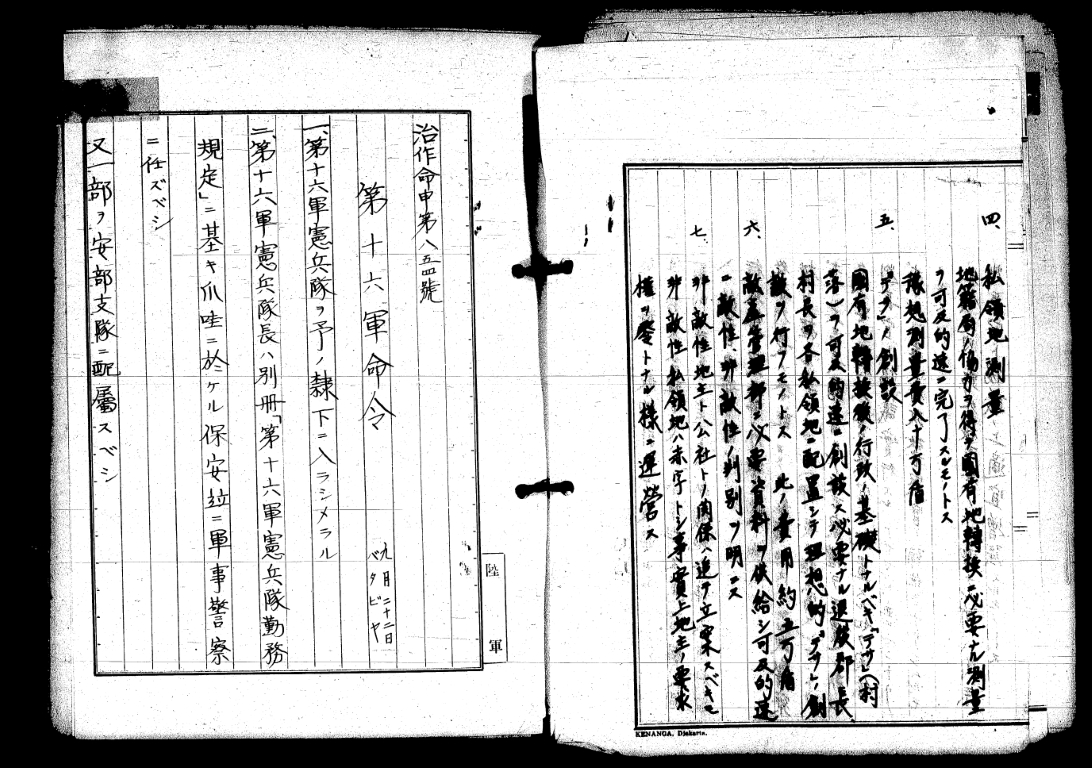 四、私領地測量
地籍局ノ協力ヲ得テ國有地轉換ニ必要ナル測量
ヲ可及的速ニ完了スルモノトス
豫想測量費八十万盾
五、「デサ」ノ創設
國有地轉換後ノ行政ノ基礎トナルベキ「デサ」(村
落)ヲ可及的速ニ創設ス必要ナル退役郡長
村長ヲ各私領地ニ配置シテ理想的「デサ」ノ創
設ヲ行フモノトス 此ノ費用約五万盾
六、敵産管理部ニ必要資料ヲ供給シ可及的速
ニ敵性、非敵性ノ判別ヲ明ニス
七、非敵性地主ト公社トノ関係ハ追テ立案スベキモ
非敵性私領地ハ赤字トシ事實上地主ノ要求
権ヲ零トナル様ニ運営ス
KENANGA, Djakarta.
治作命甲第八五四號
第十六軍命令
九月二十二日
バタビヤ
一、第十六軍憲兵隊ヲ予ノ隷下ニ入ラシメラル
二、第十六軍憲兵隊長ハ別冊「第十六軍憲兵隊勤務
規定」ニ基キ爪哇ニ於ケル保安竝ニ軍事警察
ニ任ズベシ
又一部ヲ安部支隊ニ配屬スベシ
陸軍